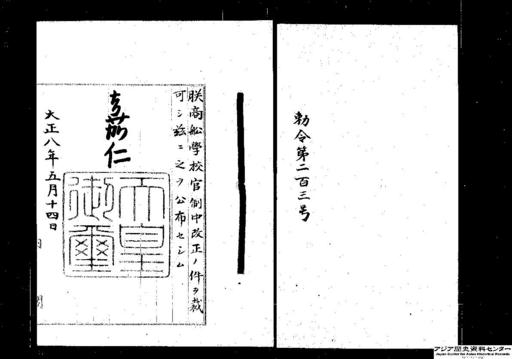 勅令第二百三号
朕商船學校官制中改正ノ件ヲ裁
可シ茲ニ之ヲ公布セシム
嘉仁
天皇
御璽
大正八年五月十四日
アジア歴史資料センター
Japan Center for Asian Historical Records